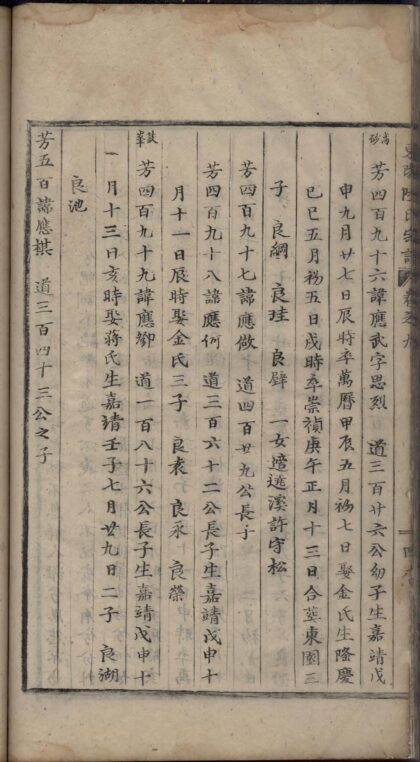 氏宗譜 卷之九
芳四百九十六諱應武字思烈 道三百廿六公幼子生嘉靖戊
申九月廿七日辰時卒萬曆甲辰五月初七日娶金氏生隆慶
己巳五月初五日戌時卒崇禎庚午正月十三日合葬東園三
子 良綱 良珪 良璧 一女適遙溪許守松
芳四百九十七諱應做 道四百廿九公長子
芳四百九十八諱應何 道三百六十二公長子生嘉靖戊申十
月十一日辰時娶金氏三子 良表 良永 良榮
芳四百九十九諱應御 道一百八十六公長子生嘉靖戊申十
一月十三日亥時娶蔣氏生嘉靖壬子七月廿九日二子 良湖
良池
芳五百諱應棋 道三百四十三公之子